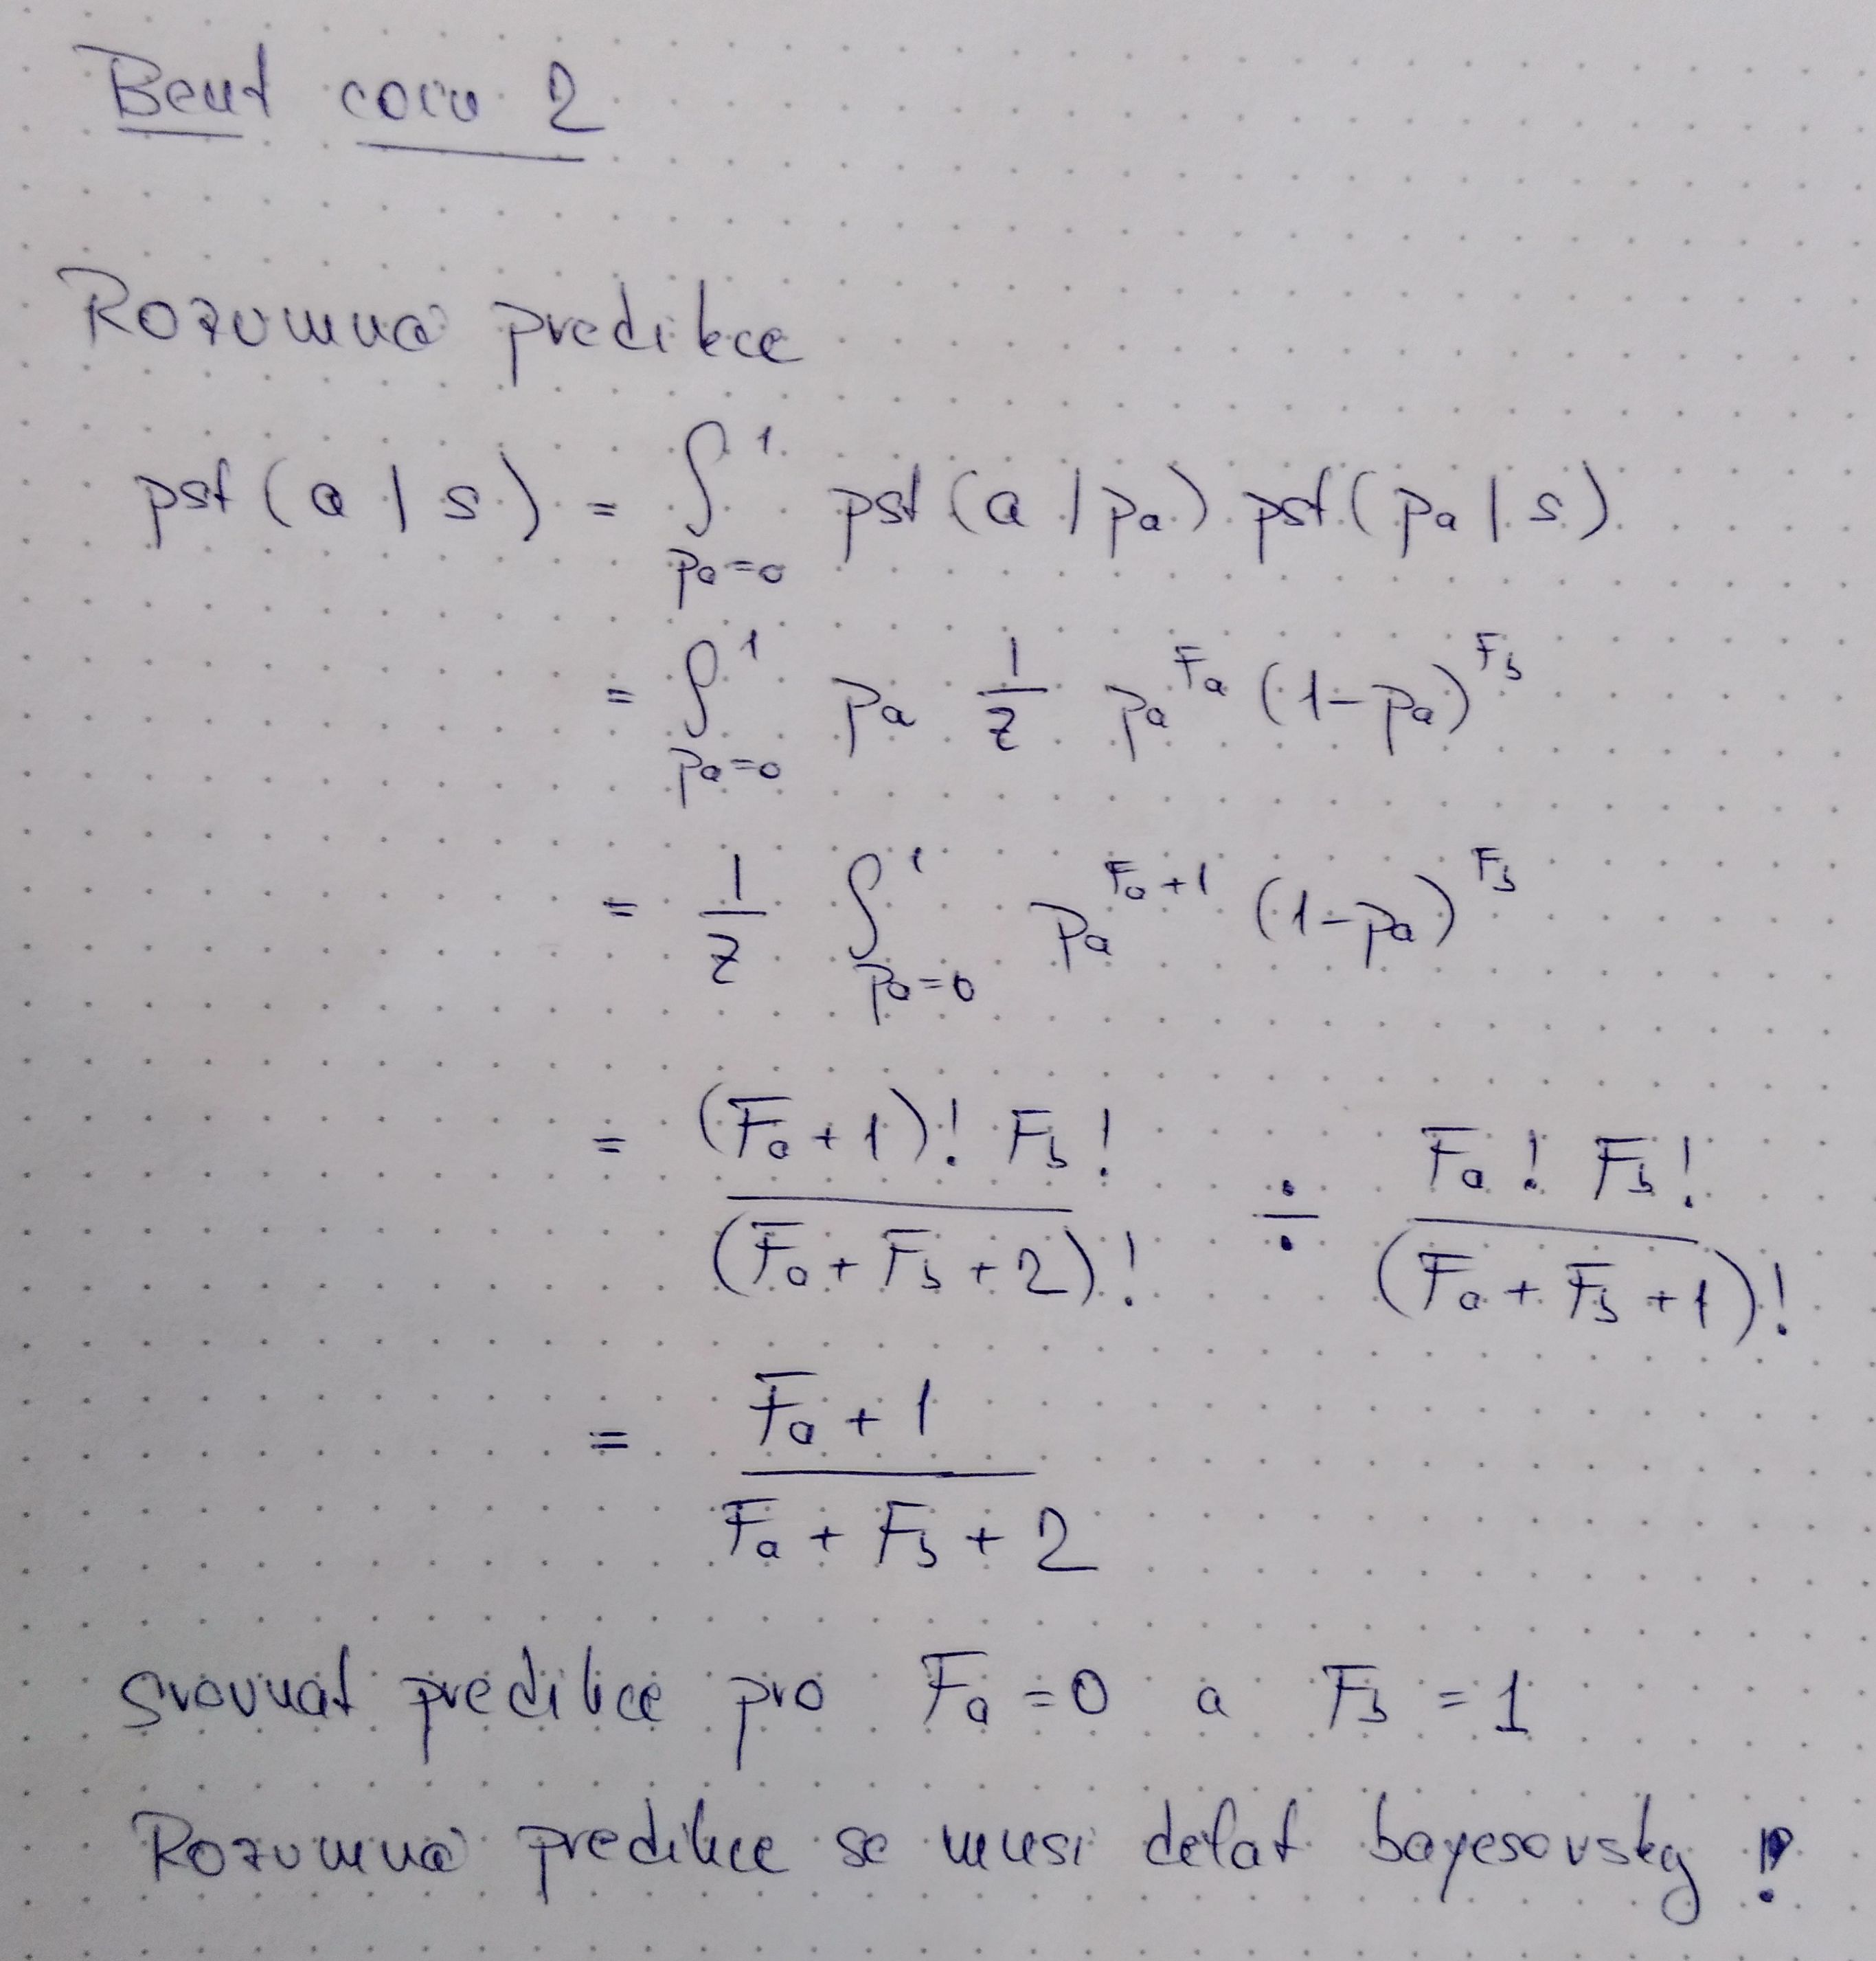 Bent coin 2
Rozumna predikce
pst(a|s) = ∫_{p_a=0}^{1} pst(a|p_a) pst(p_a|s)
= ∫_{p_a=0}^{1} p_a \frac{1}{Z} p_a^{F_a} (1-p_a)^{F_b}
= \frac{1}{Z} ∫_{p_a=0}^{1} p_a^{F_a+1} (1-p_a)^{F_b}
= \frac{(F_a+1)! F_b!}{(F_a+F_b+2)!} ÷ \frac{F_a! F_b!}{(F_a+F_b+1)!}
= \frac{F_a+1}{F_a+F_b+2}
srovnat predikce pro F_a=0 a F_b=1
Rozumna predikce se musi delat bayesovsky !